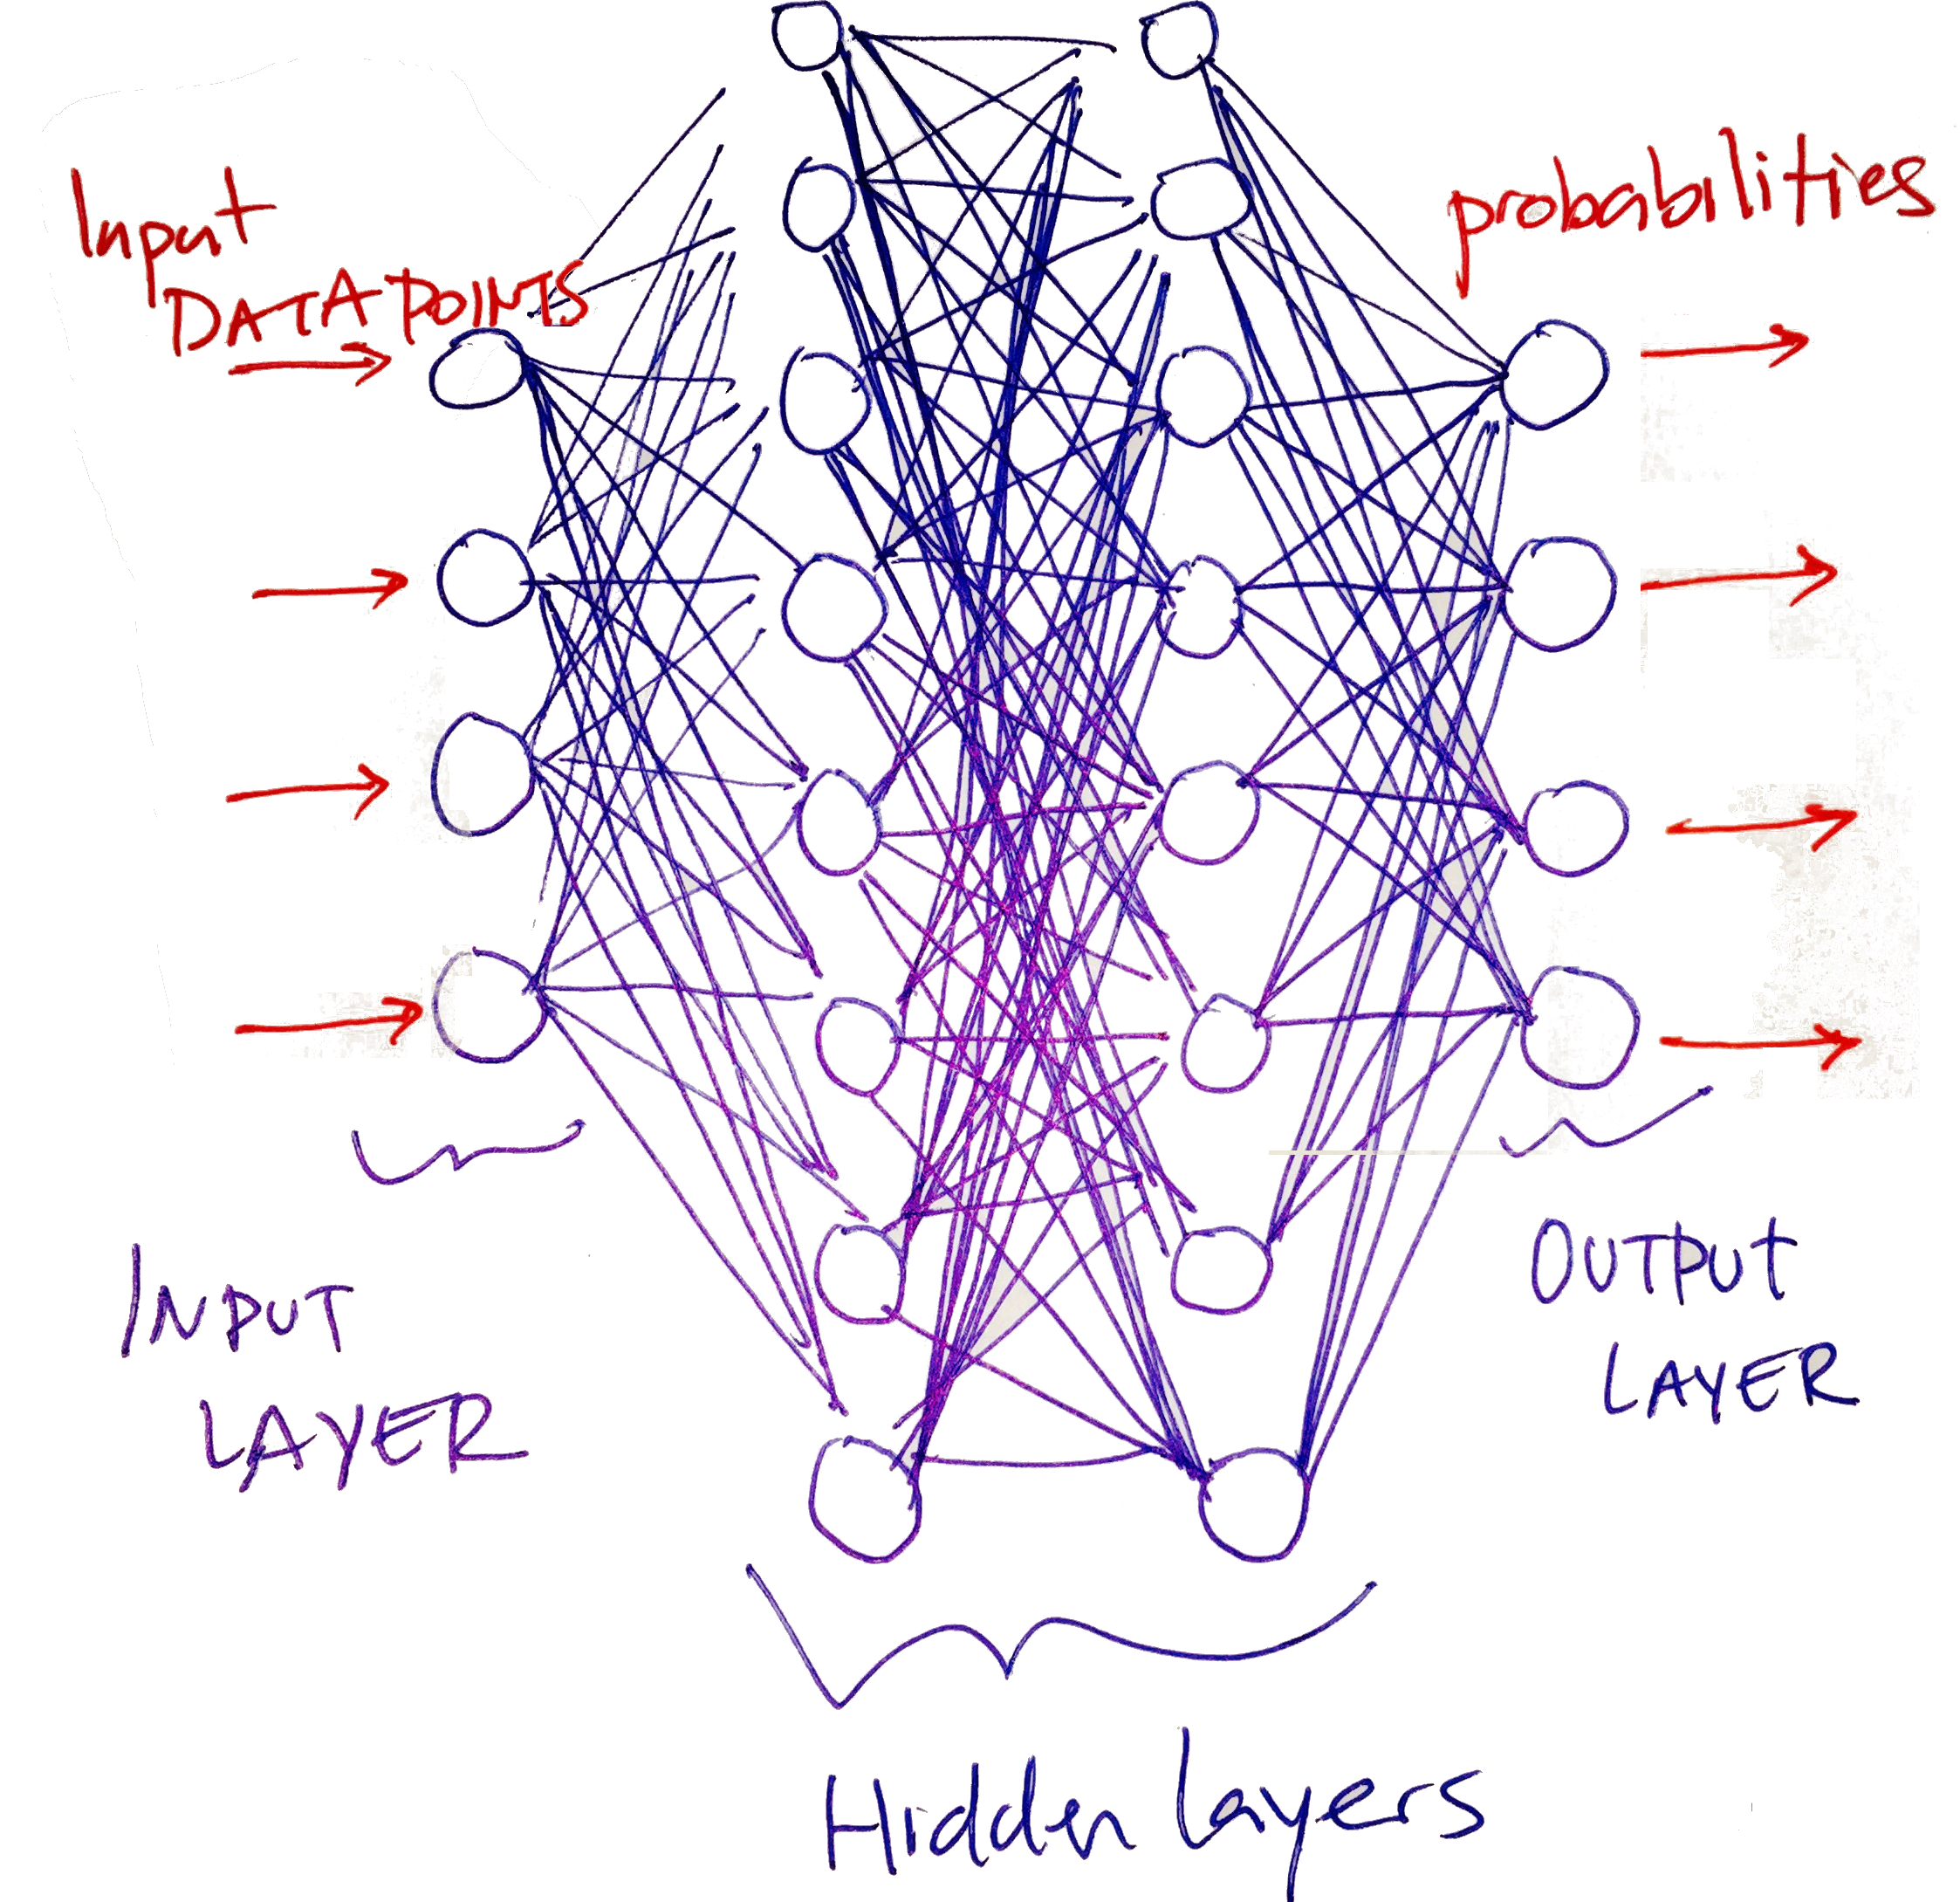 Input
DATA POINTS
probabilities
INPUT
LAYER
OUTPUT
LAYER
Hidden Layers